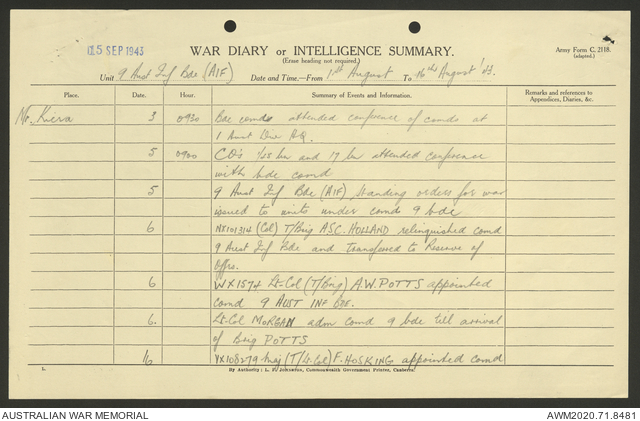 15 SEP 1943
WAR DIARY or INTELLIGENCE SUMMARY.
(Erase heading not required.)
Army Form C. 2118.
(adapted.)
Unit 9 Aust Inf Bde (AIF) Date and Time.—From 1st August To 16th August '43.
Place. Date. Hour. Summary of Events and Information. Remarks and references to Appendices, Diaries, &c.
Mt. Kiera 3 0930 Bde comds attended conference of comds at
1 Aust Div HQ.
5 0900 CO's 1/25 bn and 17 bn attended conference
with bde comd
5 9 Aust Inf Bde (AIF) standing orders for war
issued to units under comd 9 bde
6 NX101314 (Col) T/Brig A.S.C. HOLLAND relinquished comd
9 Aust Inf Bde and transferred to Reserve of
Offrs.
6 WX1574 Lt-Col (T/Brig) A.W. POTTS appointed
comd 9 AUST INF BDE.
6. Lt-Col MORGAN adm comd 9 bde till arrival
of Brig POTTS
16 VX108279 Maj (T/Lt-Col) F. HOSKING appointed comd
L. By Authority: L. F. Johnston, Commonwealth Government Printer, Canberra.
AUSTRALIAN WAR MEMORIAL
AWM2020.71.8481